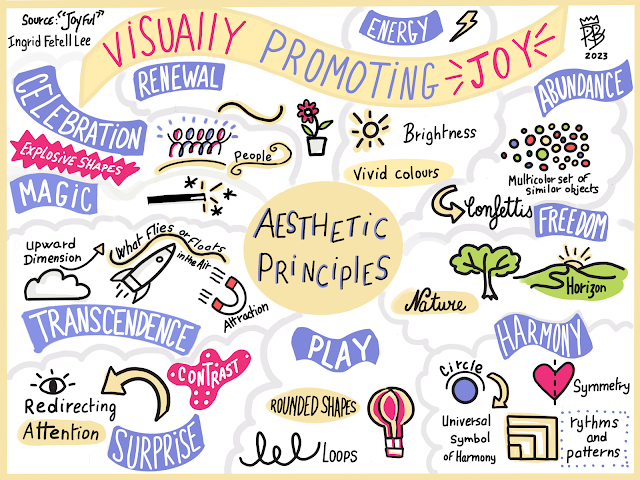 Source: "Joyful"
Ingrid Fetell Lee
VISUALLY PROMOTING JOY
PB
2023
ENERGY
Brightness
Vivid colours
ABUNDANCE
Multicolor set of
similar objects
Confettis
RENEWAL
CELEBRATION
EXPLOSIVE SHAPES
People
MAGIC
AESTHETIC
PRINCIPLES
FREEDOM
Nature
Horizon
upward
Dimension
What flies or floats
in the Air
Attraction
TRANSCENDENCE
CONTRAST
Redirecting
Attention
SURPRISE
PLAY
ROUNDED SHAPES
Loops
HARMONY
Circle
Universal
Symbol
of Harmony
Symmetry
rythms
and
patterns